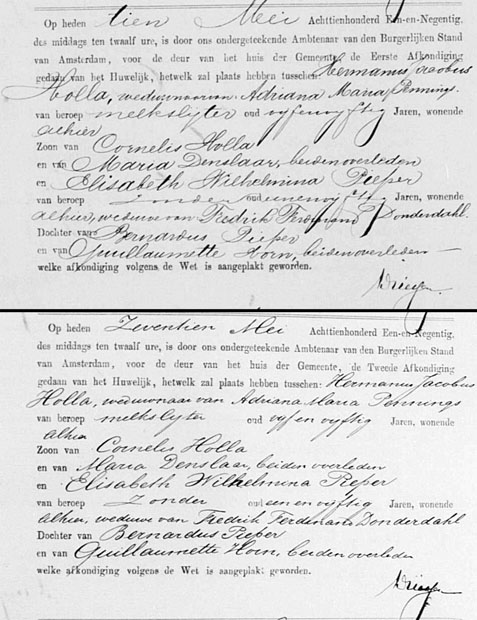 Op heden tien Mei Achttienhonderd Een-en-Negentig,
des middags ten twaalf ure, is door ons ondergeteekende Ambtenaar van den Burgerlijken Stand
van Amsterdam, voor de deur van het huis der Gemeente, de Eerste Afkondiging
gedaan van het Huwelijk, hetwelk zal plaats hebben tusschen Hermanus Jacobus
Holla, weduwnaar van Adriana Maria Pennings
van beroep melkslyter oud vyfenvyftig Jaren, wonende
alhier
Zoon van Cornelis Holla
en van Maria Denslaar, beiden overleden
en Elisabeth Wilhelmina Pieper
van beroep zonder oud eenenvyftig Jaren, wonende
alhier, weduwe van Fredrik Ferdinand Donderdahl
Dochter van Bernardus Pieper
en van Guillaumette Horn, beiden overleden
welke afkondiging volgens de Wet is aangeplakt geworden.
Op heden Zeventien Mei Achttienhonderd Een-en-Negentig,
des middags ten twaalf ure, is door ons ondergeteekende Ambtenaar van den Burgerlijken Stand
van Amsterdam, voor de deur van het huis der Gemeente, de Tweede Afkondiging
gedaan van het Huwelijk, hetwelk zal plaats hebben tusschen: Hermanus Jacobus
Holla, weduwnaar van Adriana Maria Pennings
van beroep melkslyter oud vyf en vyftig Jaren, wonende
alhier
Zoon van Cornelis Holla
en van Maria Denslaar, beiden overleden
en Elisabeth Wilhelmina Pieper
van beroep zonder oud een en vyftig Jaren, wonende
alhier, weduwe van Fredrik Ferdinand Donderdahl
Dochter van Bernardus Pieper
en van Guillaumette Horn, beiden overleden
welke afkondiging volgens de Wet is aangeplakt geworden.